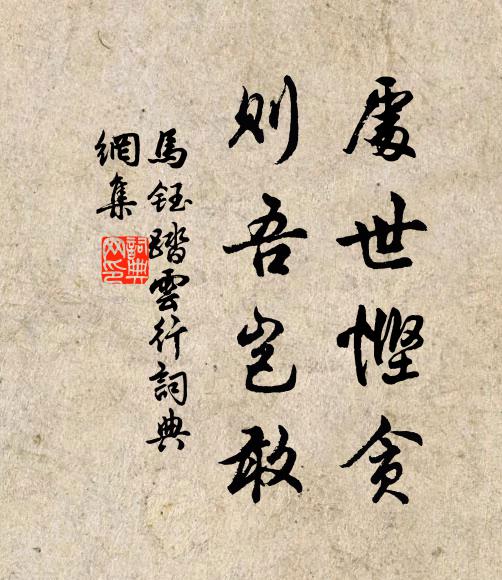 處世慳貪
則吾豈敢
馬鈺踏雲行詞典
網集
詞典
网印